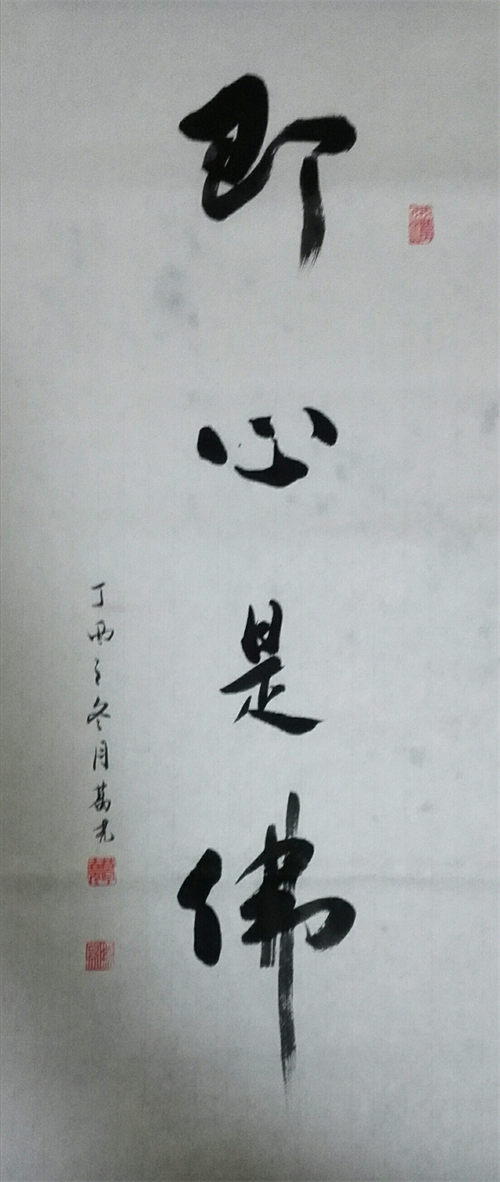 即心是佛
丁酉之冬月葛光